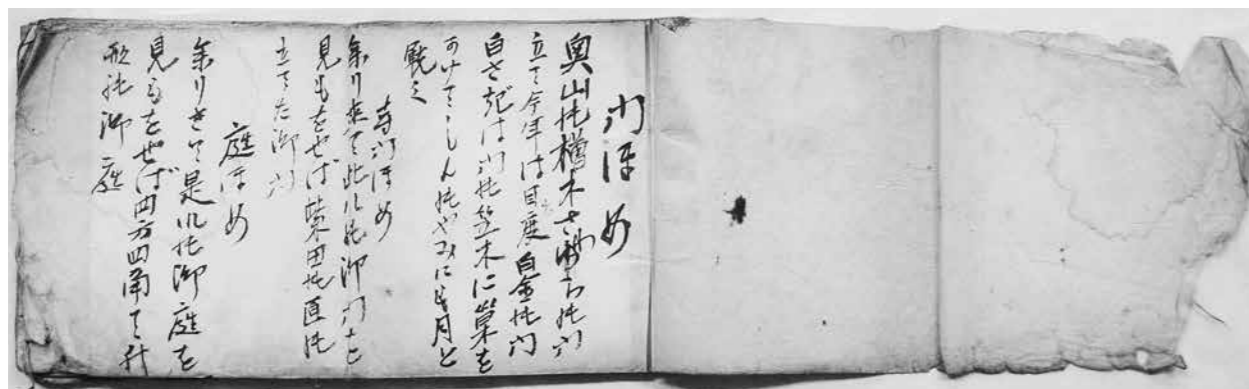 門ほめ
奥山の樽木さ　の門
立て今年は目度白金の門
白さぎは門の笠木に巣を
かけてこしんのやみにも月と
厩之
寺門ほめ
参り来て此れの御門を
見もをせば　田の直の
立てた御門
庭ほめ
参りきて是れの御庭を
見もをせば四方四角て升
形の御庭